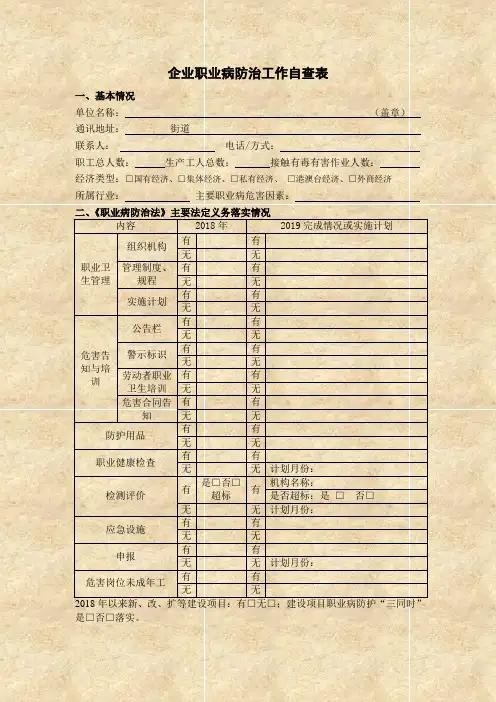 企业职业病防治工作自查表
一、基本情况
单位名称：（盖章）
通讯地址： 街道
联系人： 电话/方式：
职工总人数： 生产工人总数： 接触有毒有害作业人数：
经济类型：□国有经济、□集体经济、□私有经济、 □港澳台经济、□外商经济
所属行业： 主要职业病危害因素：
二、《职业病防治法》主要法定义务落实情况
内容 2018年 2019完成情况或实施计划
职业卫生管理 组织机构 有 有
无 无
管理制度、规程 有 有
无 无
实施计划 有 有
无 无
危害告知与培训 公告栏 有 有
无 无
警示标识 有 有
无 无
劳动者职业卫生培训 有 有
无 无
危害合同告知 有 有
无 无
防护用品 有 有
无 无
职业健康检查 有 有
无 无 计划月份：
检测评价 有 是□否□超标 有 机构名称：
是否超标：是 □ 否□
无 无 计划月份：
应急设施 有 有
无 无
申报 有 有
无 无 计划月份：
危害岗位未成年工 有 有
无 无
2018年以来新、改、扩等建设项目：有□无□；建设项目职业病防护“三同时”
是□否□落实。